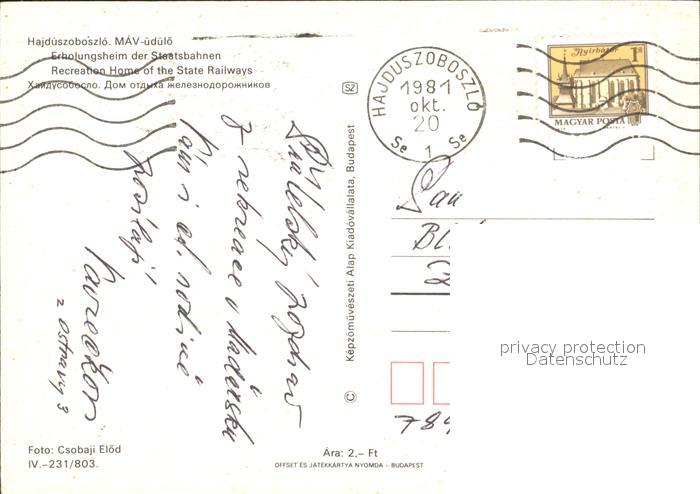 Hajdúszoboszló. MÁV-üdülő
Erholungsheim der Staatsbahnen
Recreation Home of the State Railways
Хайдусобосло. Дом отдыха железнодорожников
SZ
HAJDUSZOBOSZLÓ
1981
okt.
20
Se 1 Se
Nyírbátor
1 Ft
MAGYAR POSTA
z rekreace v Maďarsku
Vám i cel. rodině
z Ostravy 3
Képzőművészeti Alap Kiadóvállalata, Budapest
©
Pan
Bl
789
privacy protection
Datenschutz
Foto: Csobaji Előd
IV.–231/803.
Ára: 2,– Ft
OFFSET ÉS JÁTÉKKÁRTYA NYOMDA – BUDAPEST